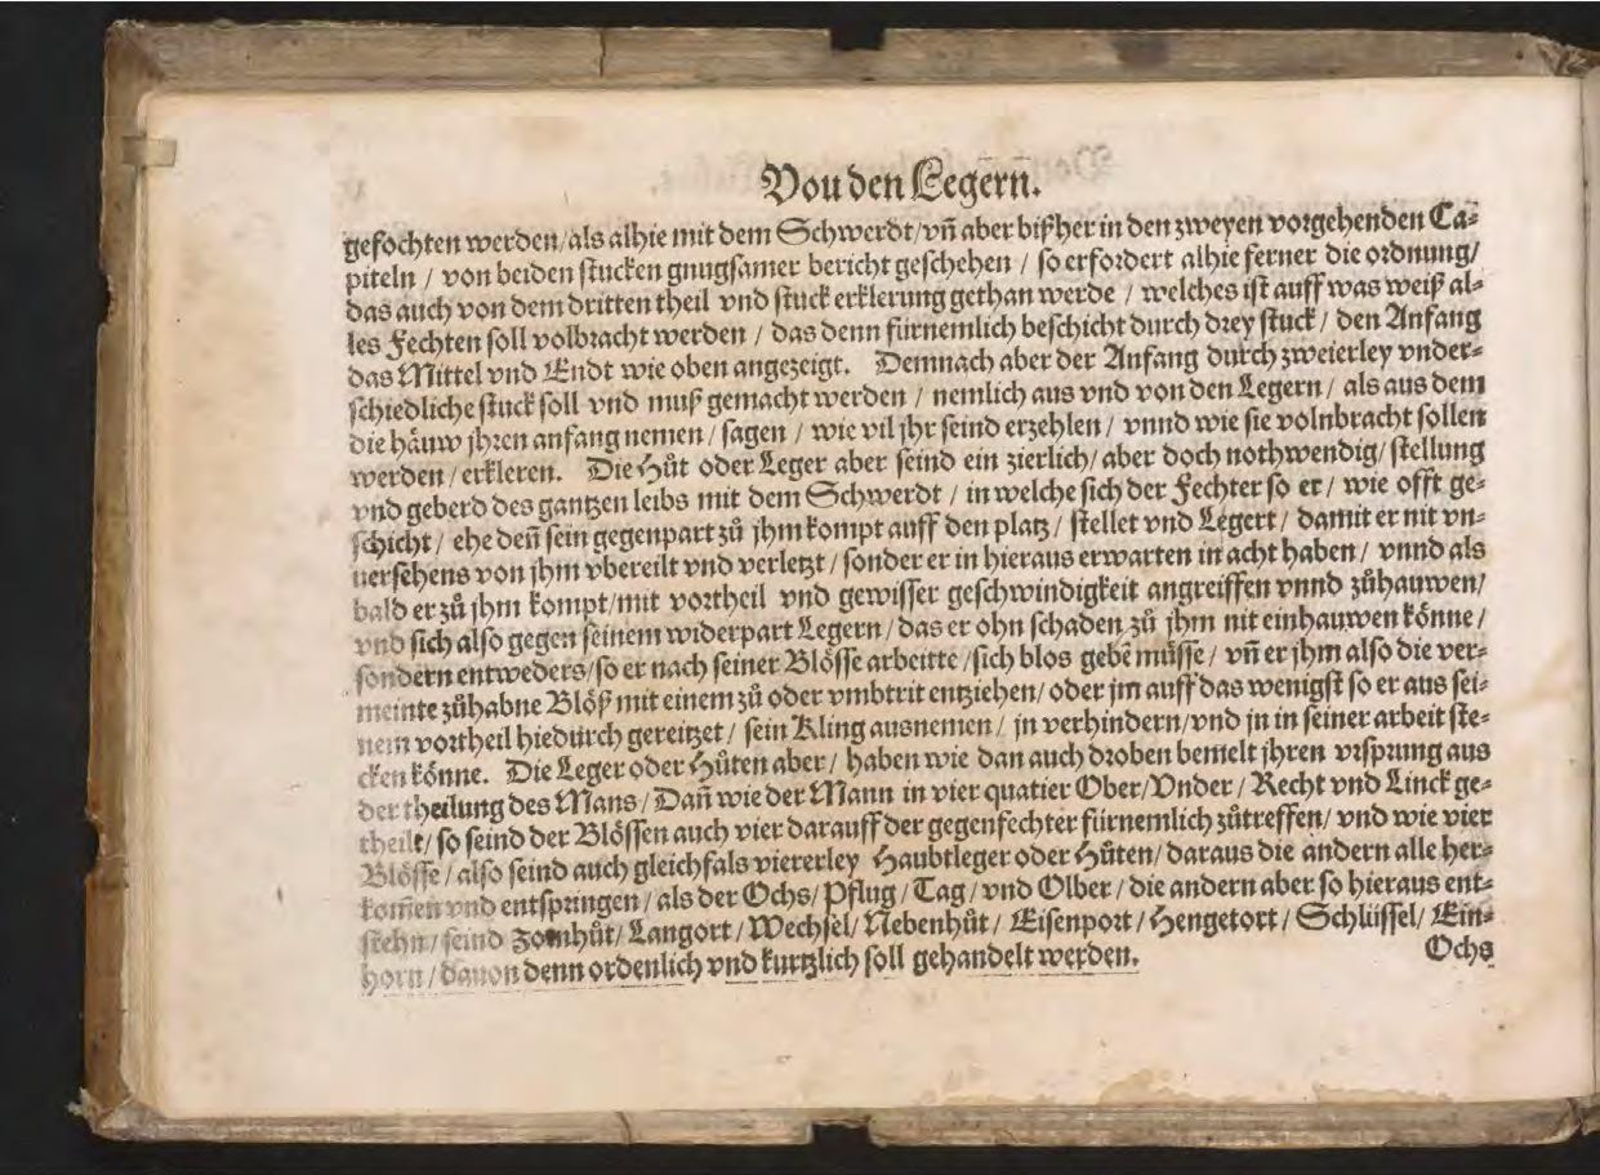 Vou den Legern̄.
gefochten werden/als alhie mit dem Schwerdt/vñ aber bißher in den zweyen vorgehenden Ca-
piteln / von beiden stucken gnugsamer bericht geschehen / so erfordert alhie ferner die ordnung/
das auch von dem dritten theil vnd stuck erklerung gethan werde / welches ist auff was weiß al-
les Fechten soll volbracht werden / das denn fürnemlich beschicht durch drey stuck / den Anfang
das Mittel vnd Endt wie oben angezeigt. Demnach aber der Anfang durch zweierley vnder-
schiedliche stuck soll vnd muß gemacht werden / nemlich aus vnd von den Legern / als aus dem
die häuw jhren anfang nemen / sagen / wie vil jhr seind erzehlen / vnnd wie sie volnbracht sollen
werden / erkleren. Die Hůt oder Leger aber seind ein zierlich/ aber doch nothwendig/ stellung
vnd geberd des gantzen leibs mit dem Schwerdt / in welche sich der Fechter so er / wie offt ge-
schicht / ehe deñ sein gegenpart zů jhm kompt auff den platz / stellet vnd Legert / damit er nit vn-
uersehens von jhm vbereilt vnd verletzt / sonder er in hieraus erwarten in acht haben / vnnd als
bald er zů jhm kompt/mit vortheil vnd gewisser geschwindigkeit angreiffen vnnd zůhauwen/
vnd sich also gegen seinem widerpart Legern / das er ohn schaden zů jhm nit einhauwen könne /
sondern entweders/so er nach seiner Blösse arbeitte /sich blos gebē müsse / vñ er jhm also die ver-
meinte zůhabne Blöß mit einem zů oder vmbtrit entziehen/ oder jm auff das wenigst so er aus sei-
nem vortheil hiedurch gereitzet / sein Kling ausnemen / jn verhindern/vnd jn in seiner arbeit ste-
cken könne. Die Leger oder Hůten aber / haben wie dan auch droben bemelt jhren vrsprung aus
der theilung des Mans / Dañ wie der Mann in vier quatier Ober/Vnder / Recht vnd Linck ge-
theilt/ so seind der Blössen auch vier darauff der gegenfechter fürnemlich zůtreffen/ vnd wie vier
Blösse / also seind auch gleichfals viererley Haubtleger oder Hůten/ daraus die andern alle her-
kom̄en vnd entspringen / als der Ochs/ Pflug / Tag / vnd Olber / die andern aber so hieraus ent-
stehn / seind Zornhůt/ Langort / Wechsel/ Nebenhůt / Eisenport / Hengetort / Schlüssel/ Ein-
horn / dauon denn ordenlich vnd kurtzlich soll gehandelt werden.
Ochs